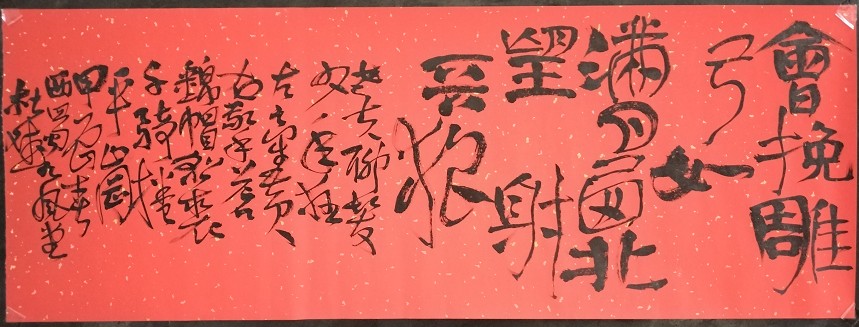 會挽雕
弓如
滿月西北
望射
天狼
老夫聊發
少年狂
左牽黃
右擎蒼
錦帽貂裘
千騎卷
平岡
甲辰春